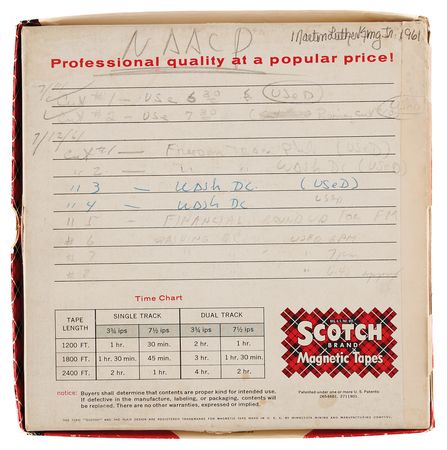 NAACP
Martin Luther King Jr. 1961
Professional quality at a popular price!
7/11
Cut #1 - USE 6 30 & (USED)
Cut #2 - USE 7 30
7/12/61
Cut #1 - Freedom Train (USED)
" 2 - " " WASH DC (USED)
" 3 - WASH DC. (USED)
" 4 - WASH DC USED
" 5 - FINANCIAL ROUNDUP FOR FM
# 6 USED 6PM
# 7 " 7pm
# 8 " 6:45
Time Chart
TAPE LENGTH SINGLE TRACK DUAL TRACK
3¾ ips 7½ ips 3¾ ips 7½ ips
1200 FT. 1 hr. 30 min. 2 hr. 1 hr.
1800 FT. 1 hr. 30 min. 45 min. 3 hr. 1 hr. 30 min.
2400 FT. 2 hr. 1 hr. 4 hr. 2 hr.
SCOTCH
BRAND
Magnetic Tapes
notice: Buyers shall determine that contents are proper kind for intended use.
If defective in the manufacture, labeling, or packaging, contents will
be replaced. There are no other warranties, expressed or implied.
Patented under one or more U. S. Patents:
2654681, 2711901.
THE TERM "SCOTCH" AND THE PLAID DESIGN ARE REGISTERED TRADEMARKS FOR MAGNETIC TAPE MADE IN U. S. A. BY MINNESOTA MINING AND MANUFACTURING COMPANY.